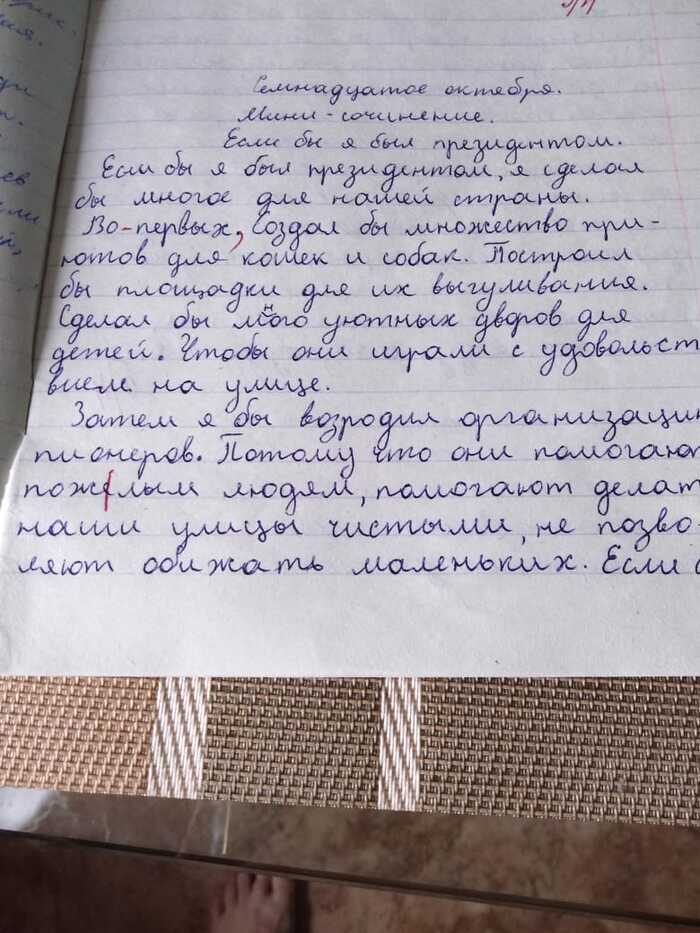 Семнадцатое октября.
Мини-сочинение.
Если бы я был президентом.
Если бы я был президентом, я сделал
бы многое для нашей страны.
Во-первых, создал бы множество при-
ютов для кошек и собак. Построил
бы площадки для их выгуливания.
Сделал бы много уютных дворов для
детей. Чтобы они играли с удовольст
вием на улице.
Затем я бы возродил организаци
пионеров. Потому что они помогают
пожелым людям, помогают делат
наши улицы чистыми, не позво
ляют обижать маленьких. Если